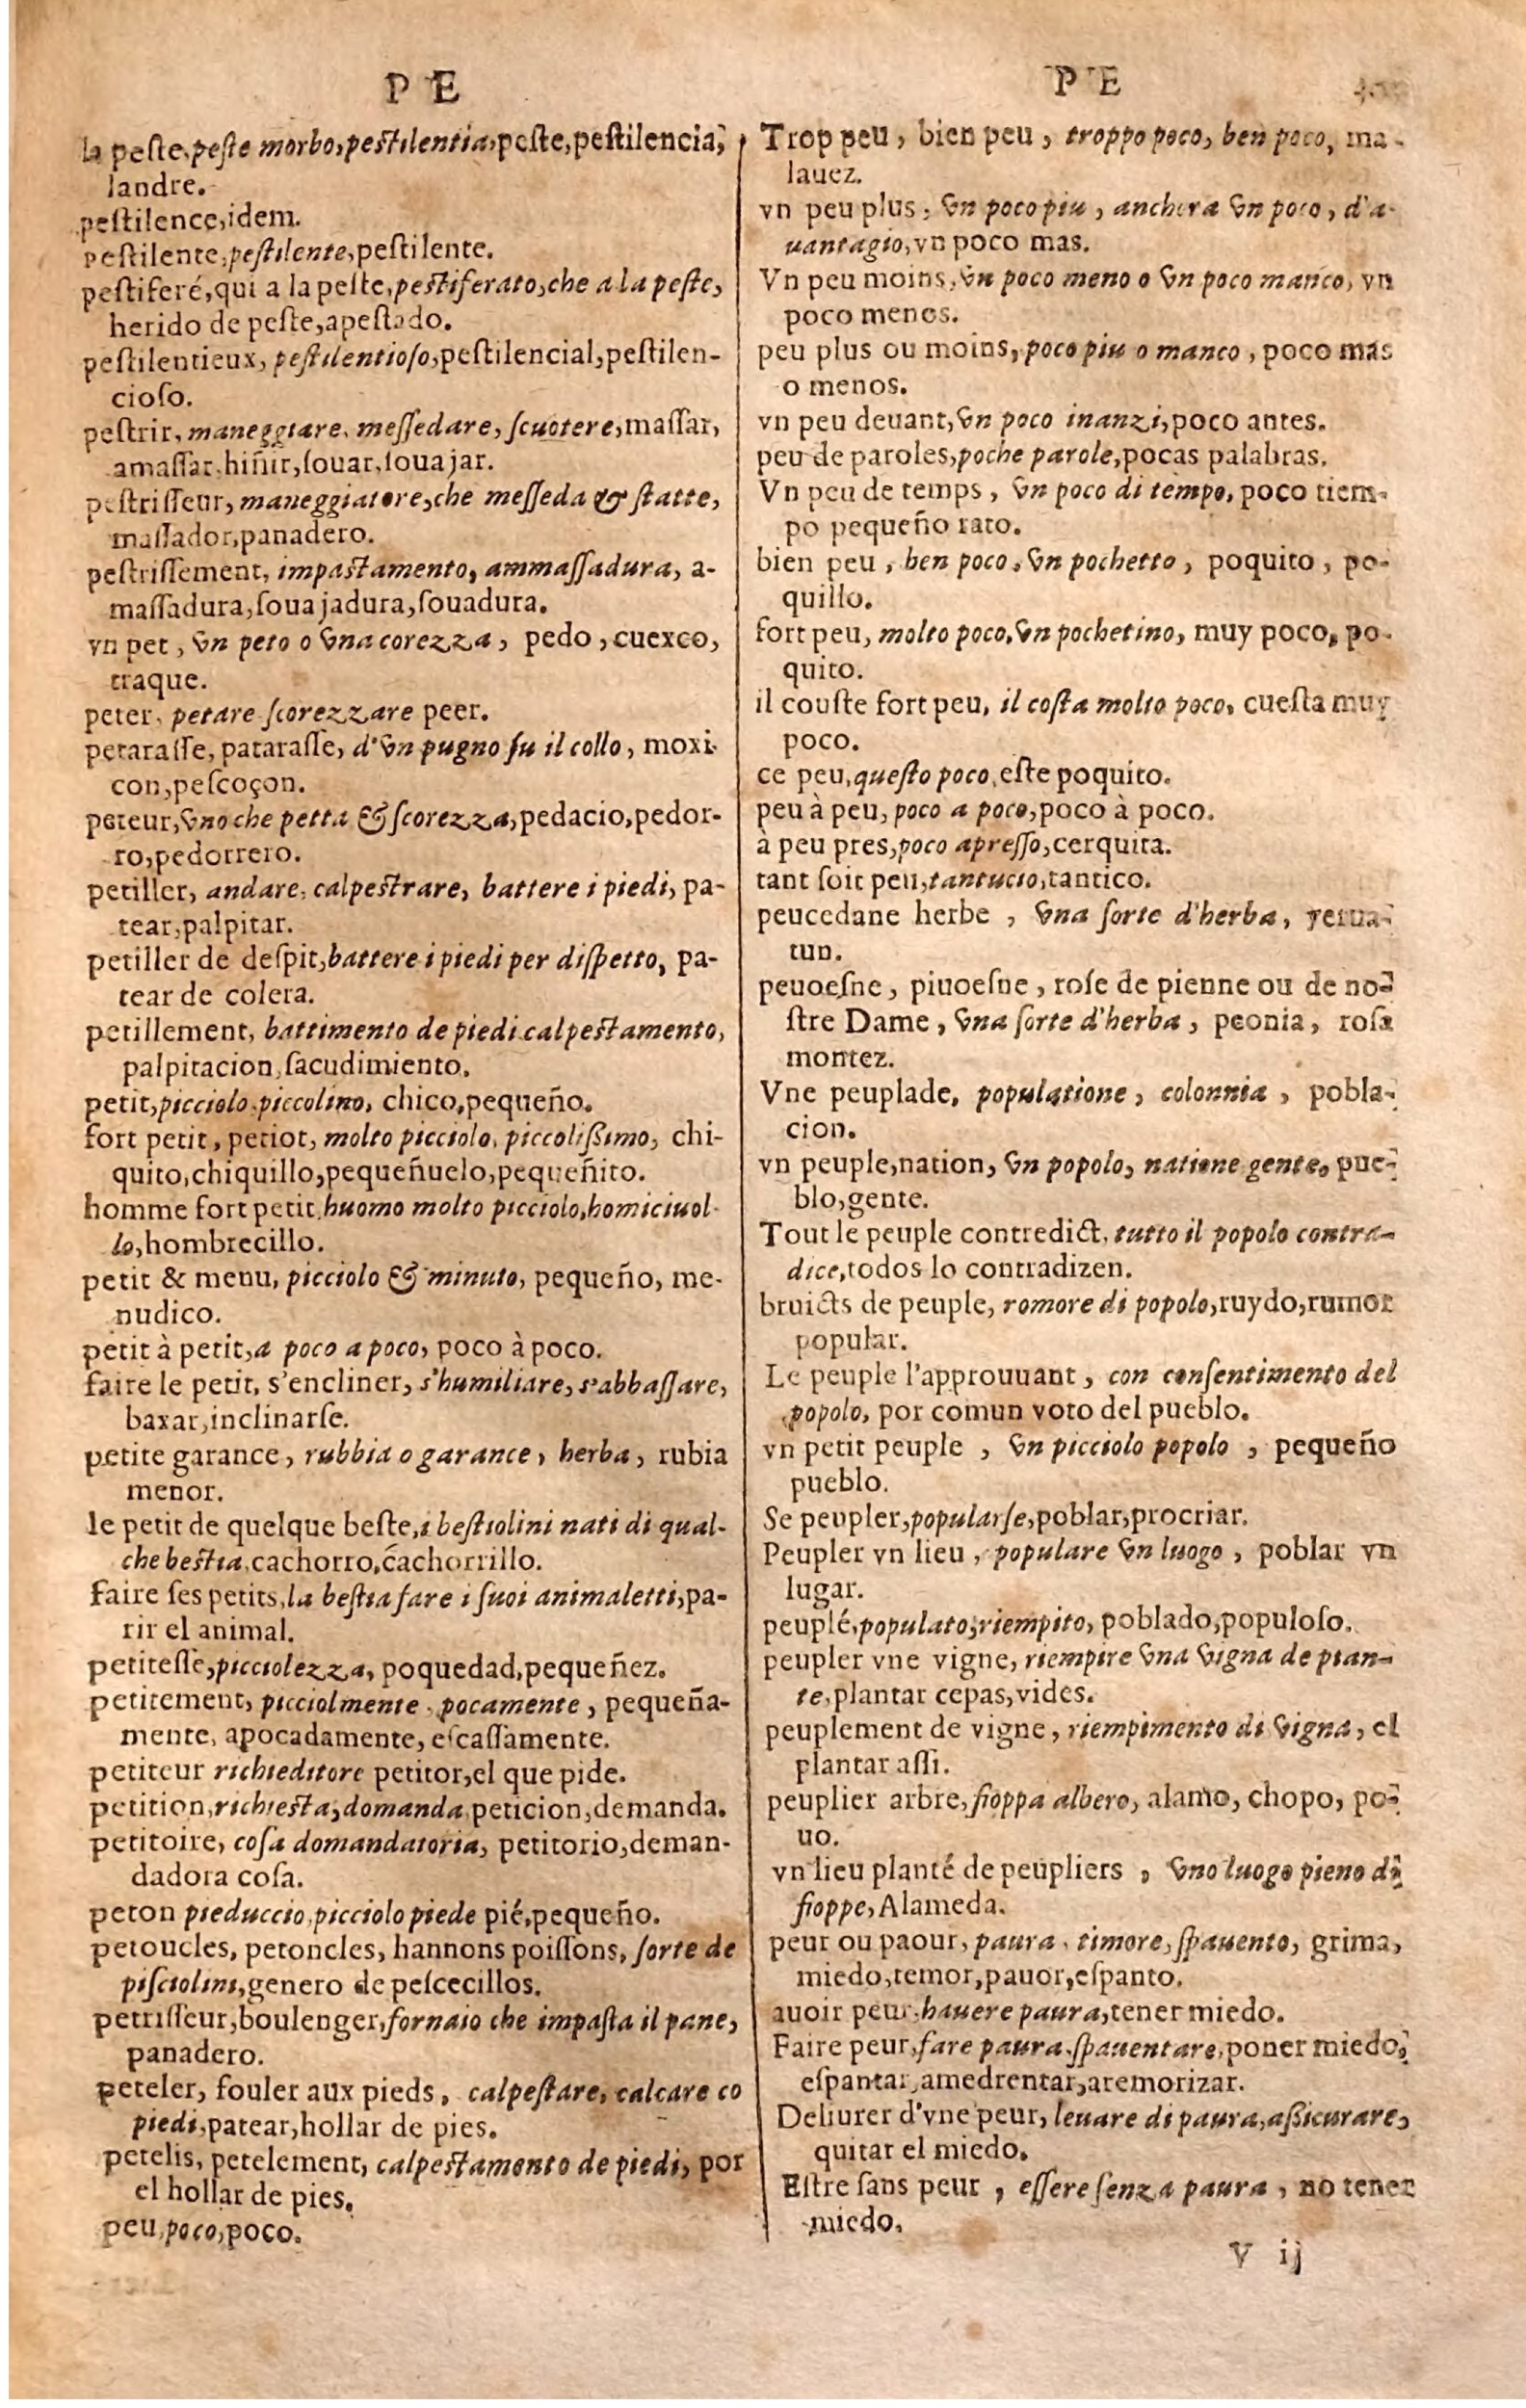 P E
la peſte, peſte morbo, peſtilentia, peſte, peſtilencia,
landre.
peſtilence, idem.
peſtilente, peſtilente, peſtilente.
peſtiferé, qui a la peſte, peſtiferato, che a la peſte,
herido de peſte, apeſtado.
peſtilentieux, peſtilentioſo, peſtilencial, peſtilen-
cioſo.
peſtrir, maneggiare, meſſedare, ſcuotere, maſſar,
amaſſar, hiñir, ſouar, ſouajar.
peſtriſſeur, maneggiatore, che meſſeda & ſtatte,
maſſador, panadero.
peſtriſſement, impaſtamento, ammaſſadura, a-
maſſadura, ſouajadura, ſouadura.
vn pet, vn peto o vna corezza, pedo, cuexco,
traque.
peter, petare ſcorezzare peer.
petaraſſe, pataraſſe, d'vn pugno ſu il collo, moxi
con, peſcoçon.
peteur, vno che petta & ſcorezza, pedacio, pedor-
ro, pedorrero.
petiller, andare, calpeſtrare, battere i piedi, pa-
tear, palpitar.
petiller de deſpit, battere i piedi per diſpetto, pa-
tear de colera.
petillement, battimento de piedi calpeſtamento,
palpitacion, ſacudimiento.
petit, picciolo, piccolino, chico, pequeño.
fort petit, petiot, molto picciolo, piccolißimo, chi-
quito, chiquillo, pequeñuelo, pequeñito.
homme fort petit, huomo molto picciolo, homiciuol-
lo, hombrecillo.
petit & menu, picciolo & minuto, pequeño, me-
nudico.
petit à petit, a poco a poco, poco à poco.
faire le petit, s'encliner, s'humiliare, s'abbaſſare,
baxar, inclinarſe.
petite garance, rubbia o garance, herba, rubia
menor.
le petit de quelque beſte, i beſtiolini nati di qual-
che beſtia, cachorro, cachorrillo.
faire ſes petits, la beſtia fare i ſuoi animaletti, pa-
rir el animal.
petiteſſe, picciolezza, poquedad, pequeñez.
petitement, picciolmente, pocamente, pequeña-
mente, apocadamente, eſcaſſamente.
petiteur richieditore petitor, el que pide.
petition, richieſta, domanda, peticion, demanda.
petitoire, coſa domandatoria, petitorio, deman-
dadora coſa.
peton pieduccio, picciolo piede pié, pequeño.
petoucles, petoncles, hannons poiſſons, ſorte de
piſciolini, genero de peſcecillos.
petriſſeur, boulenger, fornaio che impaſta il pane,
panadero.
peteler, fouler aux pieds, calpeſtare, calcare co
piedi, patear, hollar de pies.
petelis, petelement, calpeſtamento de piedi, por
el hollar de pies.
peu, poco, poco.
P E
Trop peu, bien peu, troppo poco, ben poco, ma-
lauez.
vn peu plus, vn poco piu, anchora vn poco, d'a-
uantagio, vn poco mas.
Vn peu moins, vn poco meno o vn poco manco, vn
poco menos.
peu plus ou moins, poco piu o manco, poco mas
o menos.
vn peu deuant, vn poco inanzi, poco antes.
peu de paroles, poche parole, pocas palabras.
Vn peu de temps, vn poco di tempo, poco tiem-
po pequeño rato.
bien peu, ben poco, vn pochetto, poquito, po-
quillo.
fort peu, molto poco, vn pochetino, muy poco, po-
quito.
il couſte fort peu, il coſta molto poco, cueſta muy
poco.
ce peu, queſto poco, eſte poquito.
peu à peu, poco a poco, poco à poco.
à peu pres, poco apreſſo, cerquita.
tant ſoit peu, tantucio, tantico.
peucedane herbe, vna ſorte d'herba, yerua-
tun.
peuoeſne, piuoeſne, roſe de pienne ou de no-
ſtre Dame, vna ſorte d'herba, peonia, roſa
montez.
Vne peuplade, populatione, colonnia, pobla-
cion.
vn peuple, nation, vn popolo, natione gente, pue-
blo, gente.
Tout le peuple contredict, tutto il popolo contra-
dice, todos lo contradizen.
bruicts de peuple, romore di popolo, ruydo, rumor
popular.
Le peuple l'approuuant, con conſentimento del
popolo, por comun voto del pueblo.
vn petit peuple, vn picciolo popolo, pequeño
pueblo.
Se peupler, popularſe, poblar, procriar.
Peupler vn lieu, populare vn luogo, poblar vn
lugar.
peuplé, populato, riempito, poblado, populoſo.
peupler vne vigne, riempire vna vigna de pian-
te, plantar cepas, vides.
peuplement de vigne, riempimento di vigna, el
plantar aſſi.
peuplier arbre, fioppa albero, alamo, chopo, po-
uo.
vn lieu planté de peupliers, vno luogo pieno di
fioppe, Alameda.
peur ou paour, paura, timore, ſpauento, grima,
miedo, temor, pauor, eſpanto.
auoir peur, hauere paura, tener miedo.
Faire peur, fare paura, ſpauentare, poner miedo,
eſpantar, amedrentar, aremorizar.
Deliurer d'vne peur, leuare di paura, aßicurare,
quitar el miedo.
Eſtre ſans peur, eſſere ſenza paura, no tener
miedo.
V ij